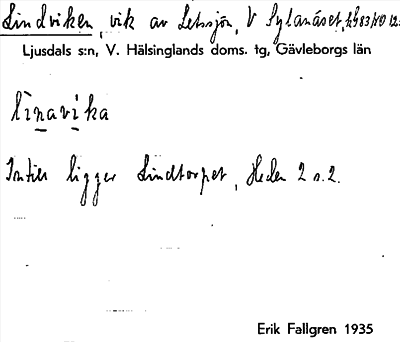 Lindviken, vik av Letssjön, V Sylanäset,
Ljusdals s:n, V. Hälsinglands doms. tg, Gävleborgs län
linavika
Intill ligger Lindtorpet, Heden 2 s. 2.
Erik Fallgren 1935